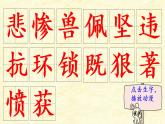 悲惨兽佩坚违
抗环锁既狠著
愤获
点击生字，
播放动漫